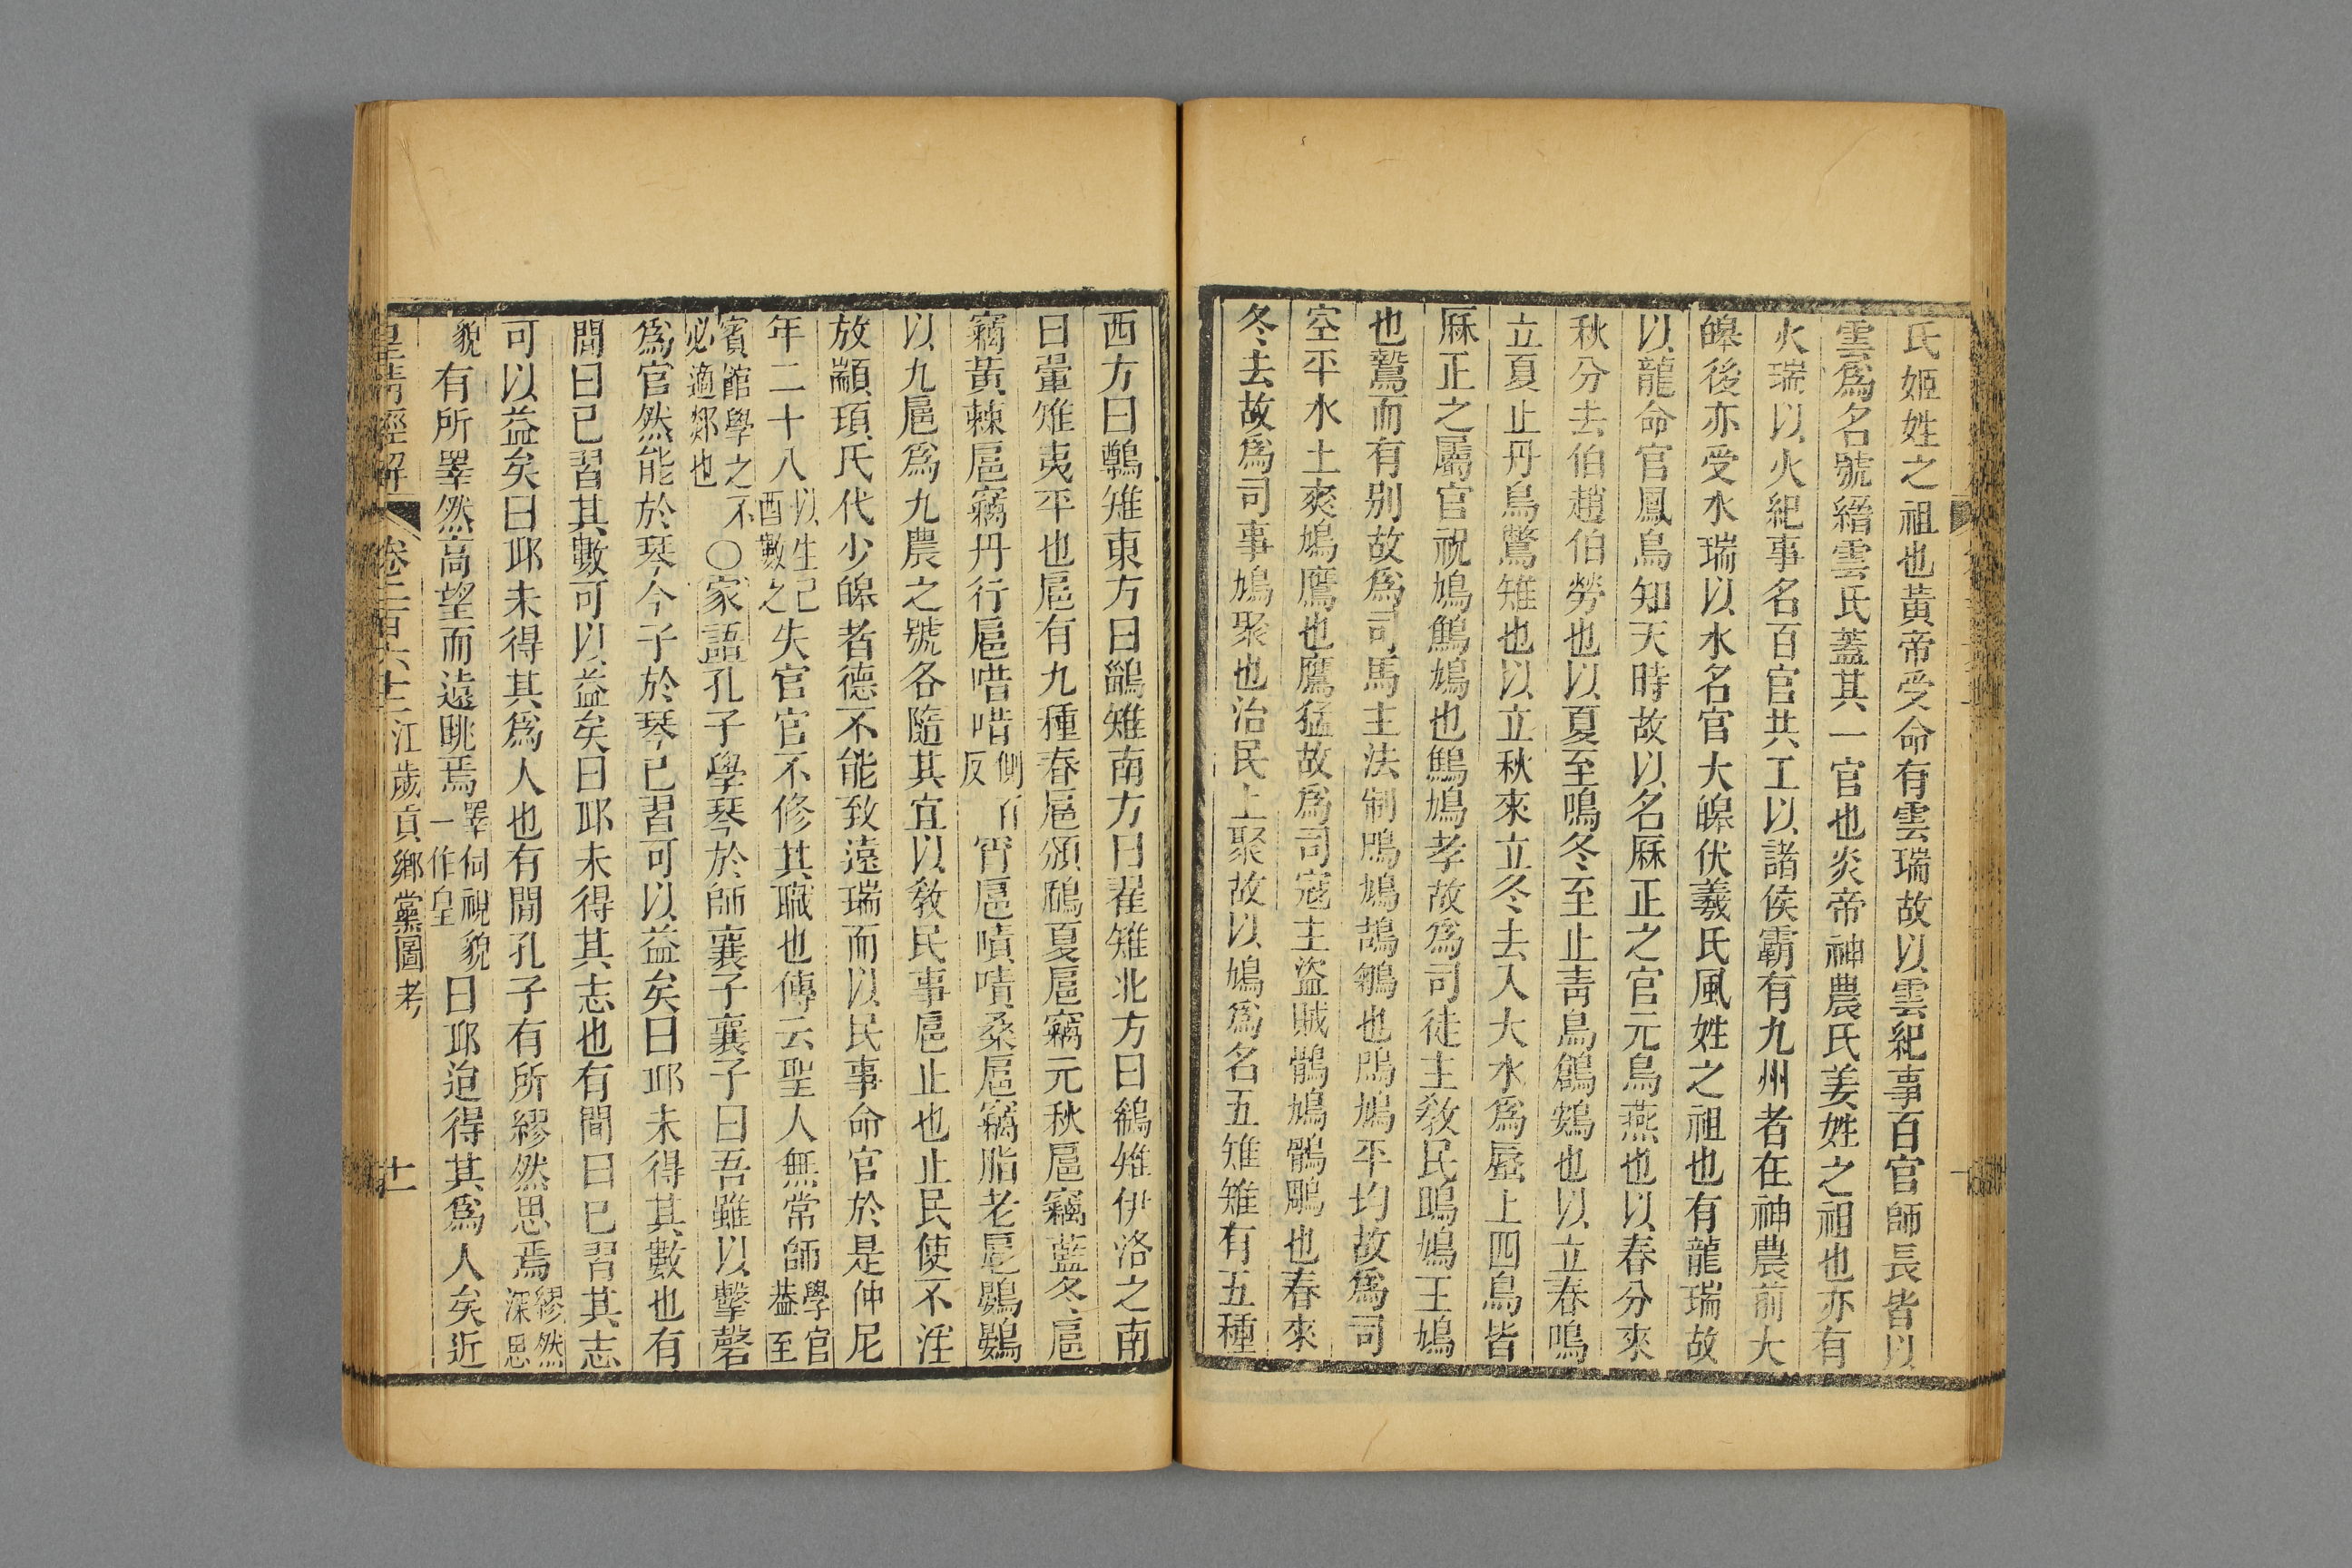 氏姬姓之祖也黃帝受命有雲瑞故以雲紀事百官師長皆以
雲爲名號縉雲氏蓋其一官也炎帝神農氏姜姓之祖也亦有
火瑞以火紀事名百官共工以諸侯霸有九州者在神農前大
皞後亦受水瑞以水名官大皞伏羲氏風姓之祖也有龍瑞故
以龍命官鳳鳥知天時故以名厤正之官元鳥燕也以春分來
秋分去伯趙伯勞也以夏至鳴冬至止青鳥鶬鴳也以立春鳴
立夏止丹鳥鷩雉也以立秋來立冬去入大水爲蜃上四鳥皆
厤正之屬官祝鳩鷦鳩也鷦鳩孝故爲司徒主教民鴡鳩王鴡
也鷙而有别故爲司馬主法制鳲鳩鴶鵴也鳲鳩平均故爲司
空平水土爽鳩鷹也鷹猛故爲司寇主盜賊鶻鳩鶻鵰也春來
冬去故爲司事鳩聚也治民上聚故以鳩爲名五雉雉有五種
西方曰鷷雉東方曰鶅雉南方曰翟雉北方曰鵗雉伊洛之南
曰翬雉夷平也扈有九種春扈鳻鶞夏扈竊元秋扈竊藍冬扈
竊黃棘扈竊丹行扈唶唶側百反宵扈嘖嘖桑扈竊脂老扈鷃鷃
以九扈爲九農之號各隨其宜以教民事扈止也止民使不淫
放顓頊氏代少皞者德不能致遠瑞而以民事命官於是仲尼
年二十八以生己酉數之失官官不修其職也傳云聖人無常師學官蓋至
賓館學之不必適郯也○家語孔子學琴於師襄子襄子曰吾雖以擊磬
爲官然能於琴今子於琴已習可以益矣曰邱未得其數也有
間曰已習其數可以益矣曰邱未得其志也有間曰已習其志
可以益矣曰邱未得其爲人也有間孔子有所繆然思焉繆然深思
貌有所睪然高望而遠眺焉睪何視貌一作皇曰邱迨得其爲人矣近
皇清經解 卷二百六十二 江歲貢鄉黨圖考 十一